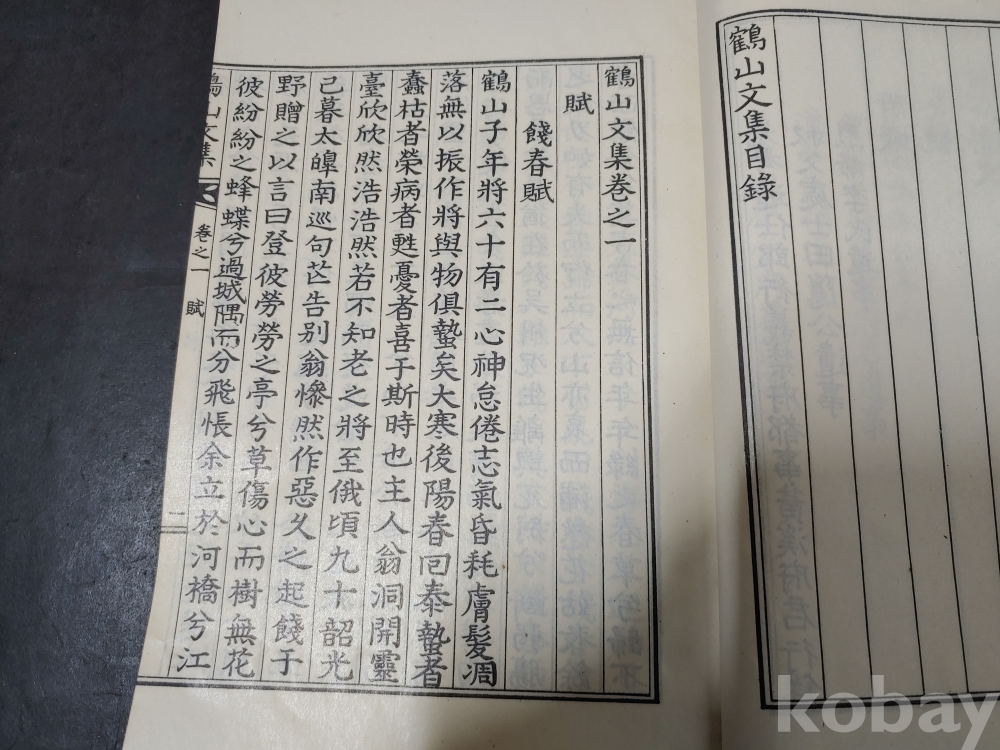 鶴山文集目錄
鶴山文集卷之一
賦
餞春賦
鶴山子年將六十有二心神怠倦志氣昏耗膚髮凋
落無以振作將與物俱蟄矣大寒後陽春回泰蟄者
蠢枯者榮病者甦憂者喜于斯時也主人翁洞開靈
臺欣欣然浩浩然若不知老之將至俄頃九十韶光
已暮太皥南巡句芒告别翁慘然作惡久之起餞于
野贈之以言曰登彼勞勞之亭兮草傷心而樹無花
彼紛紛之蜂蝶兮過城隅而分飛悵余立於河橋兮江
鶴山文集
卷之一 賦
kobay